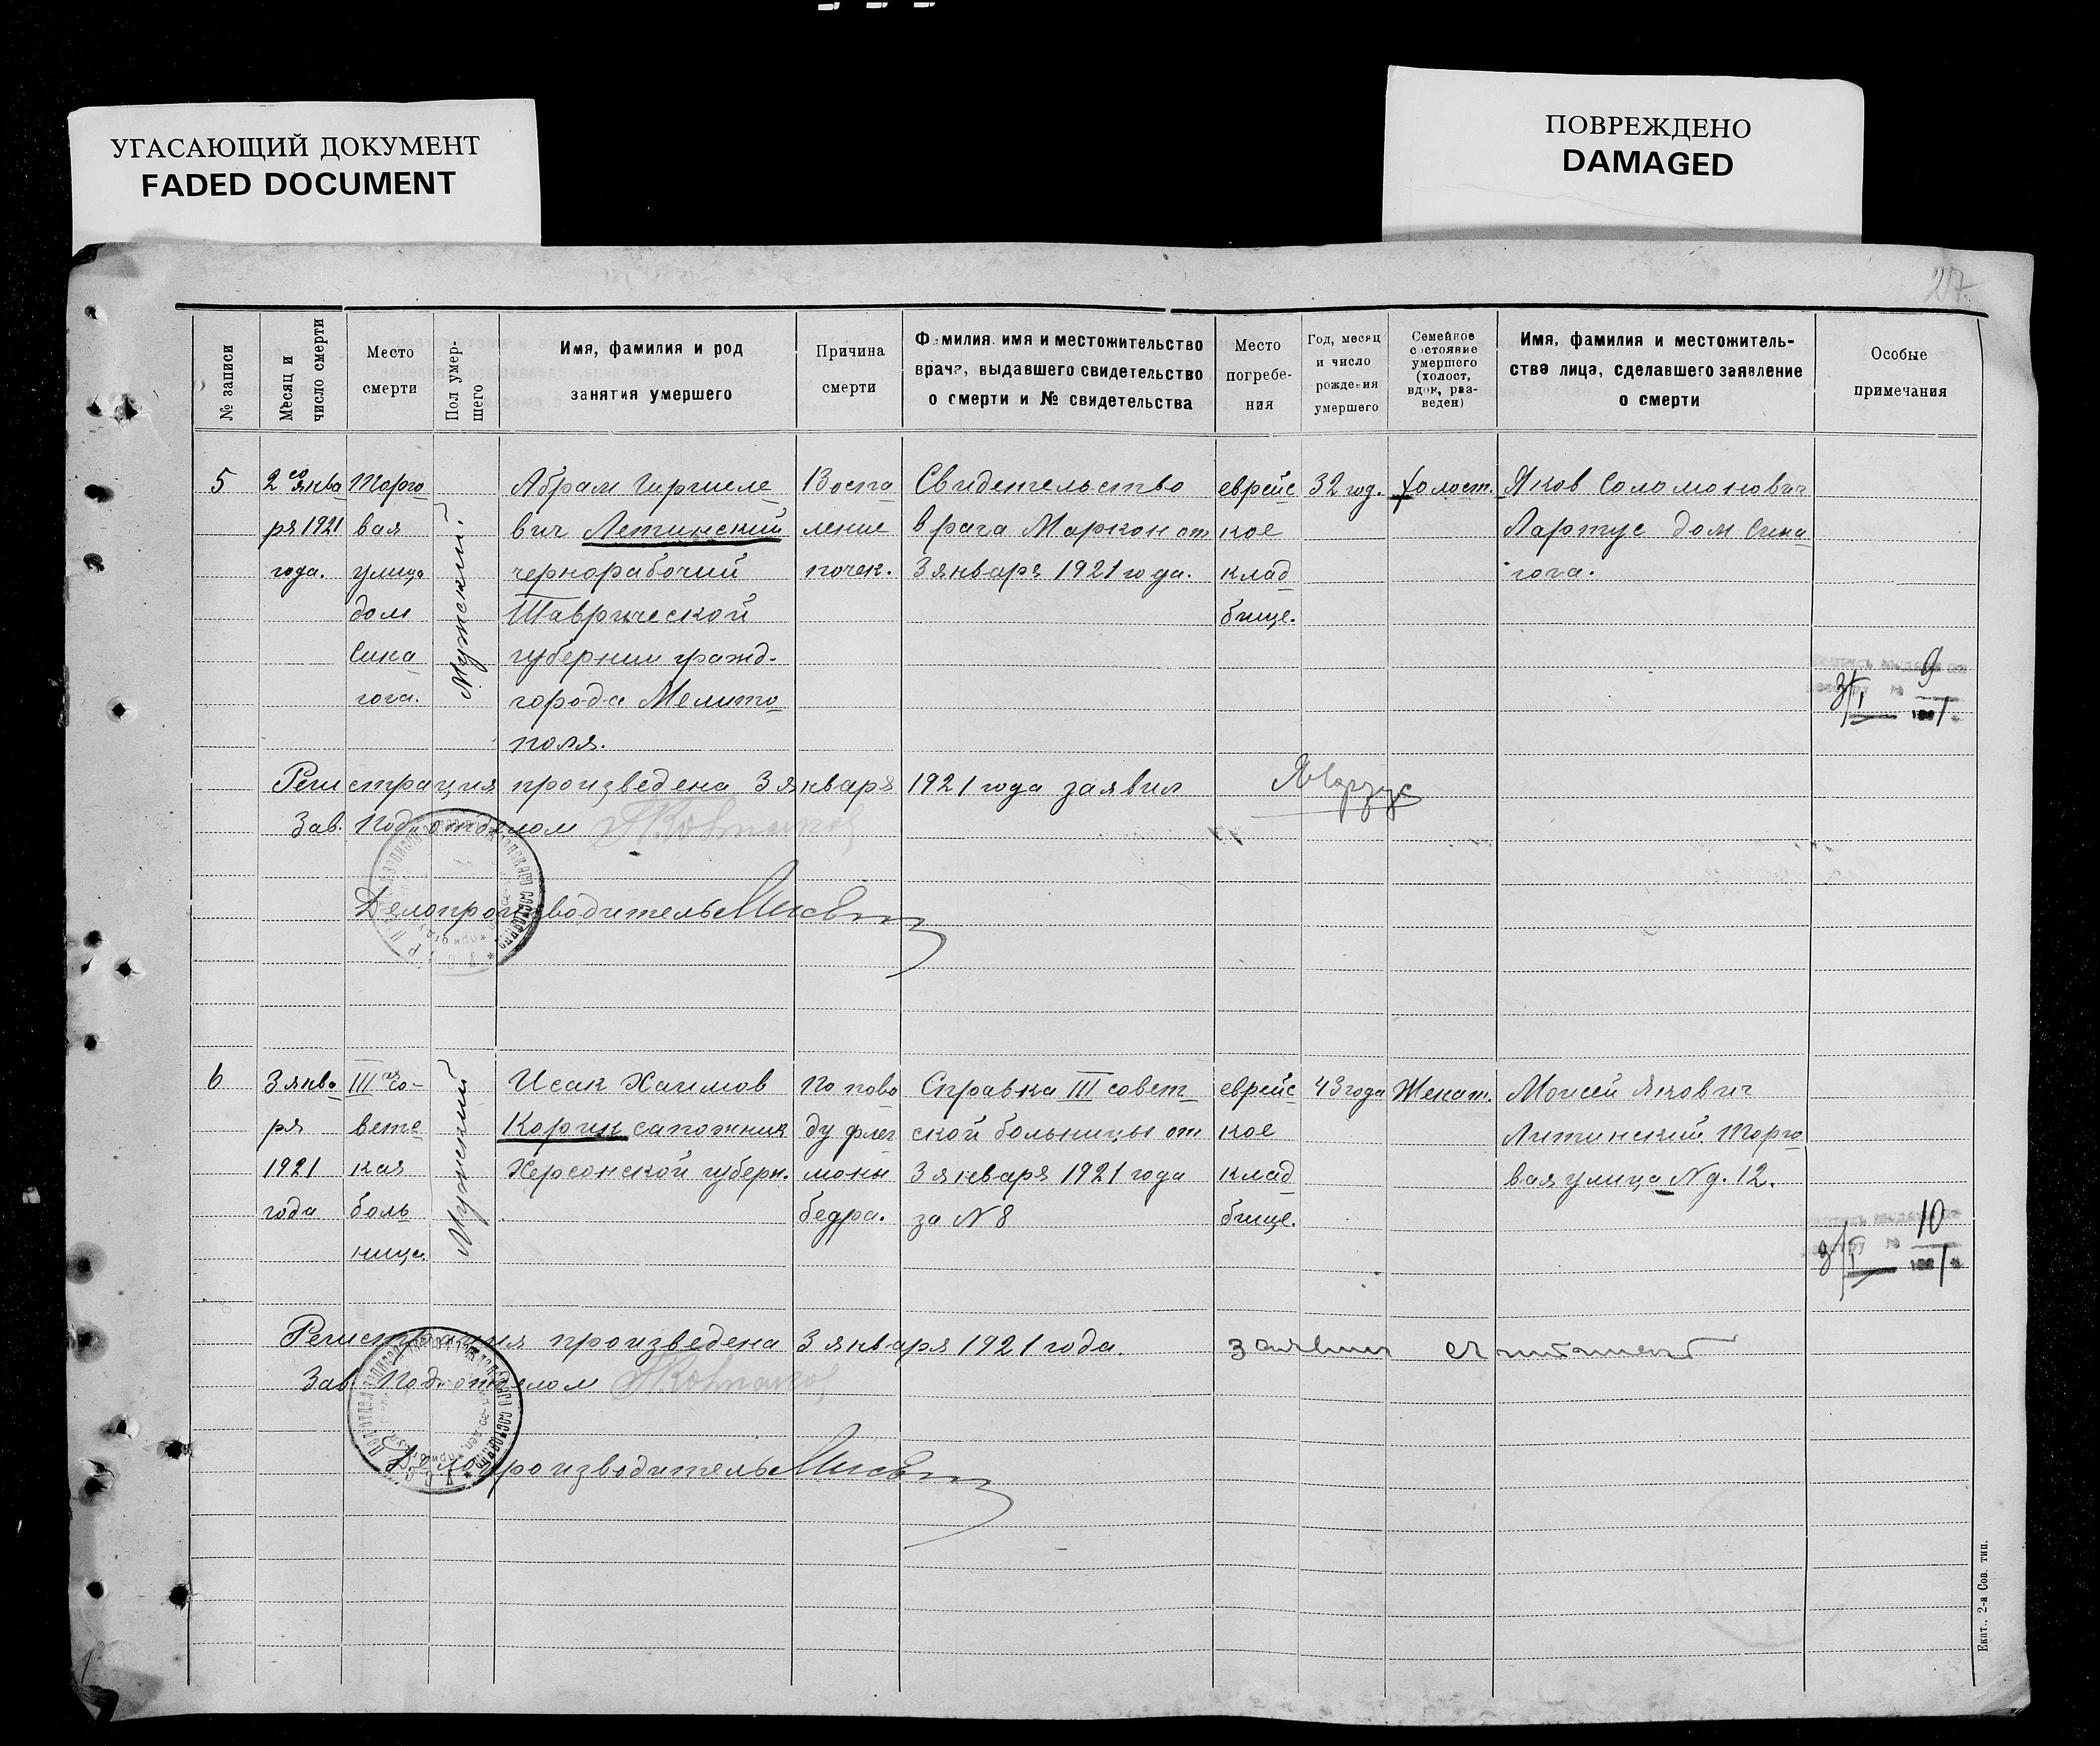 УГАСАЮЩИЙ ДОКУМЕНТ
FADED DOCUMENT
ПОВРЕЖДЕНО
DAMAGED
27
№ записи
Месяц и
число смерти
Место
смерти
Пол умер-
шего
Имя, фамилия и род
занятия умершего
Причина
смерти
Фамилия имя и местожительство
врача, выдавшего свидетельство
о смерти и № свидетельства
Место
погребе-
ния
Год, месяц
и число
рождения
умершего
Семейное
состояние
умершего
(холост,
вдов, раз-
веден)
Имя, фамилия и местожитель-
ства лица, сделавшего заявление
о смерти
Особые
примечания
5
2го янва
ря 1921
года.
Торго
вая
улица
дом
Сина
гога.
Мужской.
Абрам
вич Летинский
чернорабочий
Таврической
губернии гражд.
города Мелито
поля.
Воспа
ление
почек.
Свидетельство
врача Маркон от
3 января 1921 года.
еврейс
кое
клад
бище.
32 год.
холост.
Яков Соломонович
Лартус дом Сина
гога.
9
3/I
Регистрация произведена 3 января 1921 года заявил
Зав. Подотделом
Делопроизводитель
6
3 янва
ря
1921
года
III ая со-
ветс
кая
боль
ница
Мужской
Исак Хаимов
Корик сапожник
Херсонской губерн.
По пово
ду флег
моны
бедра.
Справка III совет
ской больницы от
3 января 1921 года
за N 8
еврейс
кое
клад
бище.
43 года
Женат.
Моисей Якович
Литинский Торго
вая улица N д. 12.
10
3/I
Регистрация произведена 3 января 1921 года.
заявил
Зав. Подотделом
Делопроизводитель
Екат., 2-а Сов. тип.